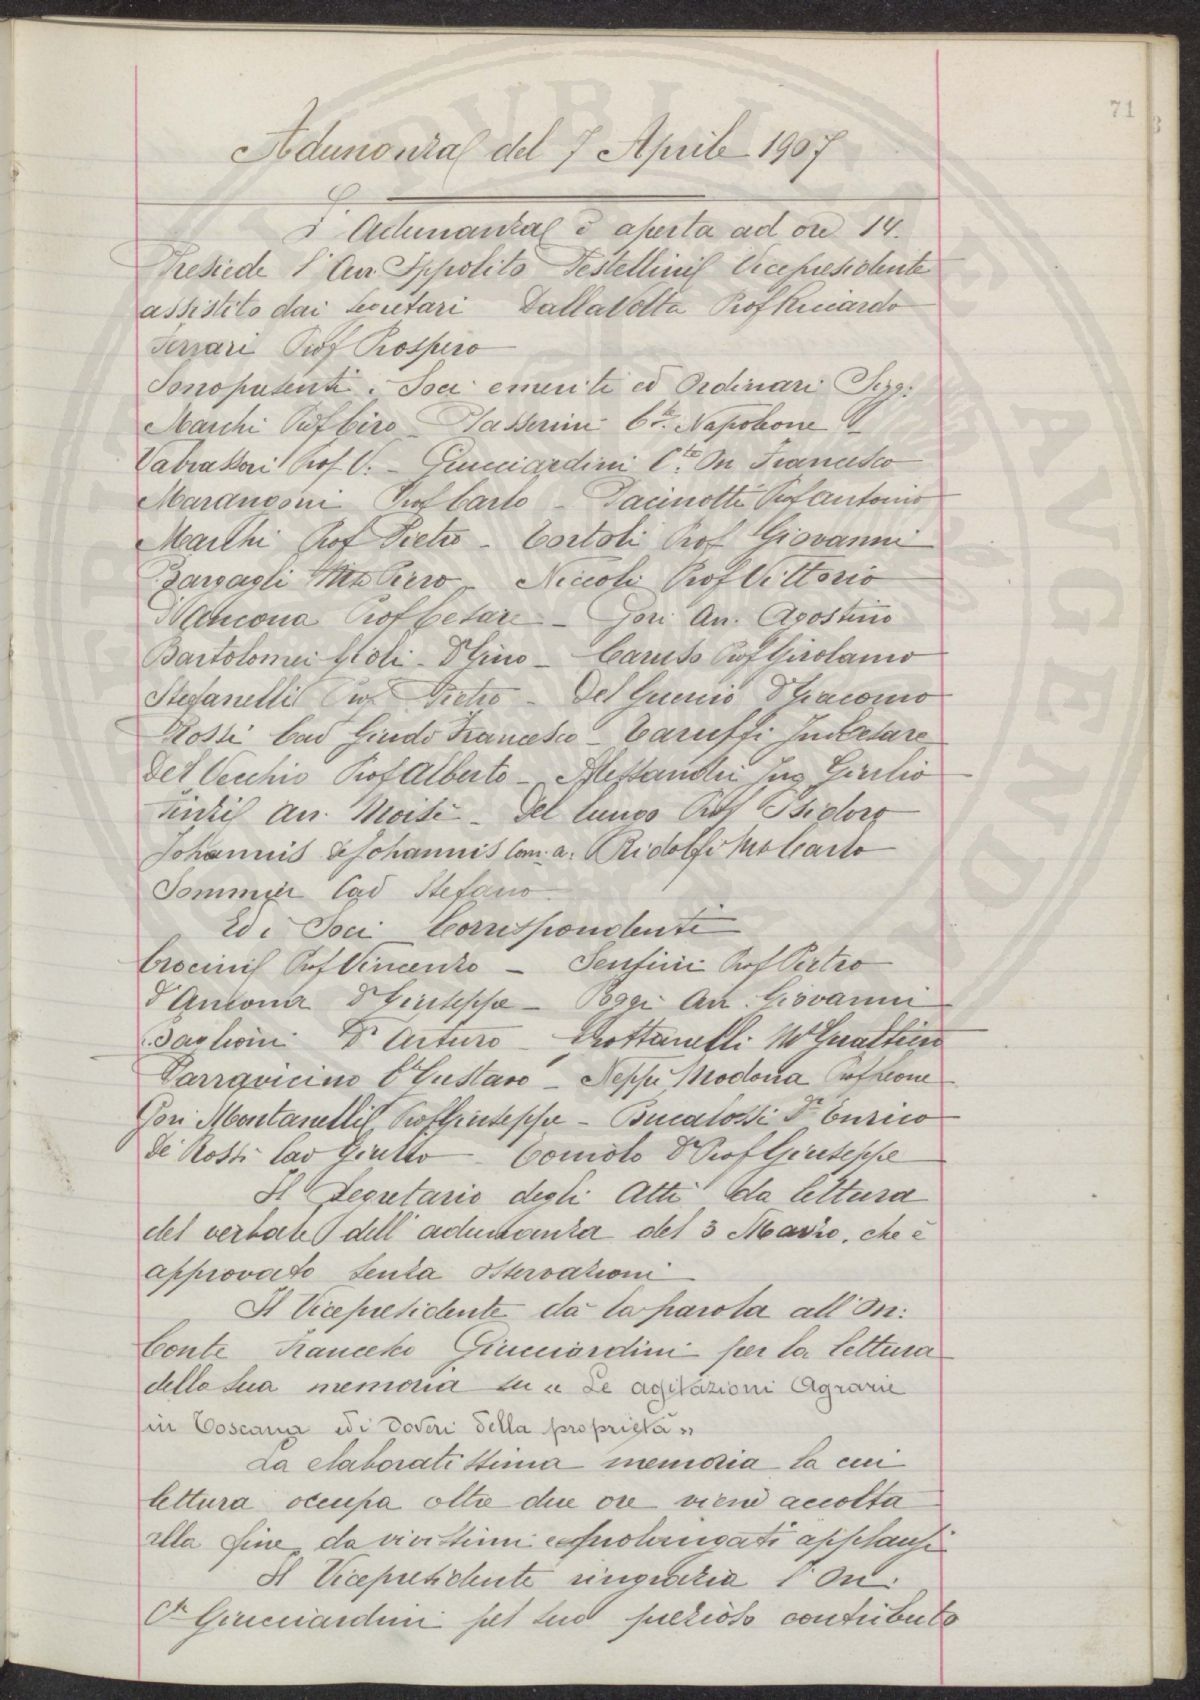 71
Adunanza del 7 Aprile 1907
L'adunanza è aperta ad ore 14.
Presiede l'Avv. Ippolito Pestellini Vicepresidente
assistito dai Segretari Dalla Volta Prof Riccardo
Ferrari Prof Prospero
Sono presenti i Soci emeriti ed Ordinari Sigg:
Marchi Prof Ciro - Passerini Cte. Napoleone -
Valvassori Prof V. - Guicciardini Cte. On Francesco
Marangoni Prof Carlo - Pacinotti Prof Antonio
Marchi Prof Pietro - Tortoli Prof Giovanni
Bargagli Mse Piero - Niccoli Prof Vittorio
D'Ancona Prof Cesare - Gori Avv. Agostino
Bartolomei Gioli - Dr Gino - Caruso Prof Girolamo
Stefanelli Prof Pietro - Del Guercio Dr Giacomo
Rossi Cav Guido Francesco - Taruffi Ing Cesare
Del Vecchio Prof Alberto - Alessandri Ing Giulio
Finzi Avv. Moisè - Del Lungo Prof Isidoro
Johannis de Johannis Com. a. Ridolfi Mse Carlo
Sommier Cav Stefano
Ed i Soci Corrispondenti
Crocini Prof Vincenzo - Senfini Prof Pietro
d'Ancona Dr Giuseppe - Poggi Avv. Giovanni
Baglioni Dr Arturo - Grottanelli Mse Gualtiero
Parravicino Cte Gustavo - Neppi Modona Prof Leone
Gori Montanelli Prof Giuseppe - Bucalossi Dr Enrico
De Rossi Cav Giulio - Toniolo Dr Prof Giuseppe
Il Segretario degli Atti da lettura
del verbale dell'adunanza del 3 Marzo, che è
approvato senza osservazioni
Il Vicepresidente dà la parola all'On:
Conte Francesco Guicciardini per la lettura
della sua memoria su « Le agitazioni Agrarie
in Toscana ed i Doveri della proprietà »
La elaboratissima memoria la cui
lettura occupa oltre due ore viene accolta
alla fine da vivissimi e prolungati applausi
Il Vicepresidente ringrazia l'On:
Cte Guicciardini pel suo prezioso contributo